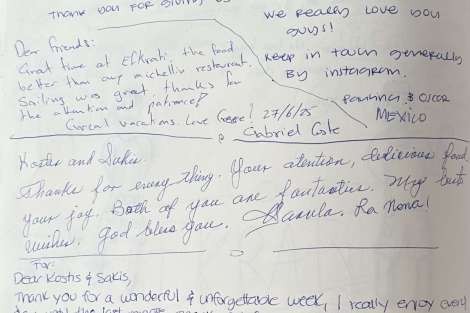 Thank you for giving us
We really love you
guys!
Keep in touch generally
By instagram.
Paulina & Oscar
MEXICO
Dear friends:
Great time at Efkrati, the food
better than any michellin restaurant.
Sailing was great. thanks for
the attention and patience?
Great vacations. Love Greece! 27/6/25
Gabriel Cote
Kostas and Sakis.
Thanks for every thing. Your atention, delicious food
your joy. Both of you are fantastics. My best
wishes. God bless you. La Nona!
For:
Dear Kostis & Sakis,
Thank you for a wonderful & unforgettable week, I really enjoy every